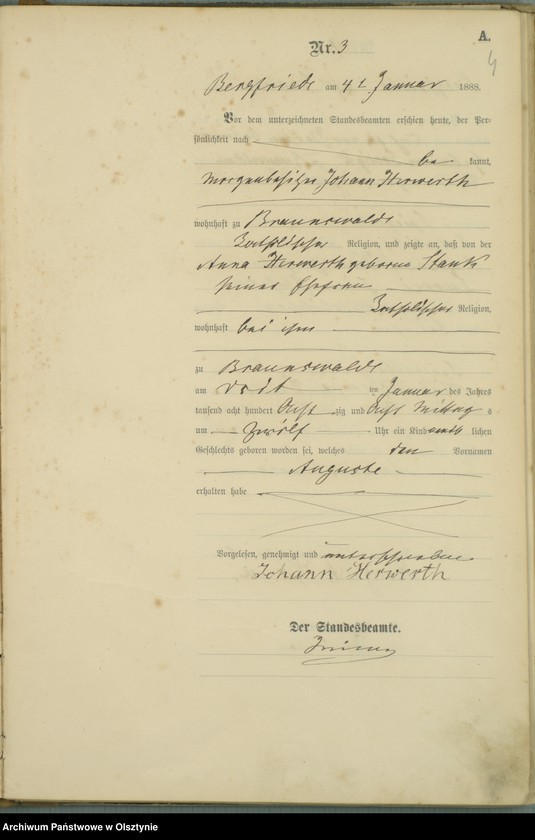 A.
4
Nr. 3
Bergfriede am 4t Januar 1888.
Vor dem unterzeichneten Standesbeamten erschien heute, der Per-
sönlichkeit nach
be kannt,
Johann Herwerth
wohnhaft zu Braunswalde
katholischer Religion, und zeigte an, daß von der
Anna Herwerth geborne Stank
seiner Ehefrau
katholischer Religion,
wohnhaft bei ihm
zu Braunswalde
am ten Januar des Jahres
tausend acht hundert Acht zig und Acht Mittag s
um zwölf Uhr ein Kind weib lichen
Geschlechts geboren worden sei, welches den Vornamen
Auguste
erhalten habe
Vorgelesen, genehmigt und unterschrieben
Johann Herwerth
Der Standesbeamte.
Archiwum Państwowe w Olsztynie